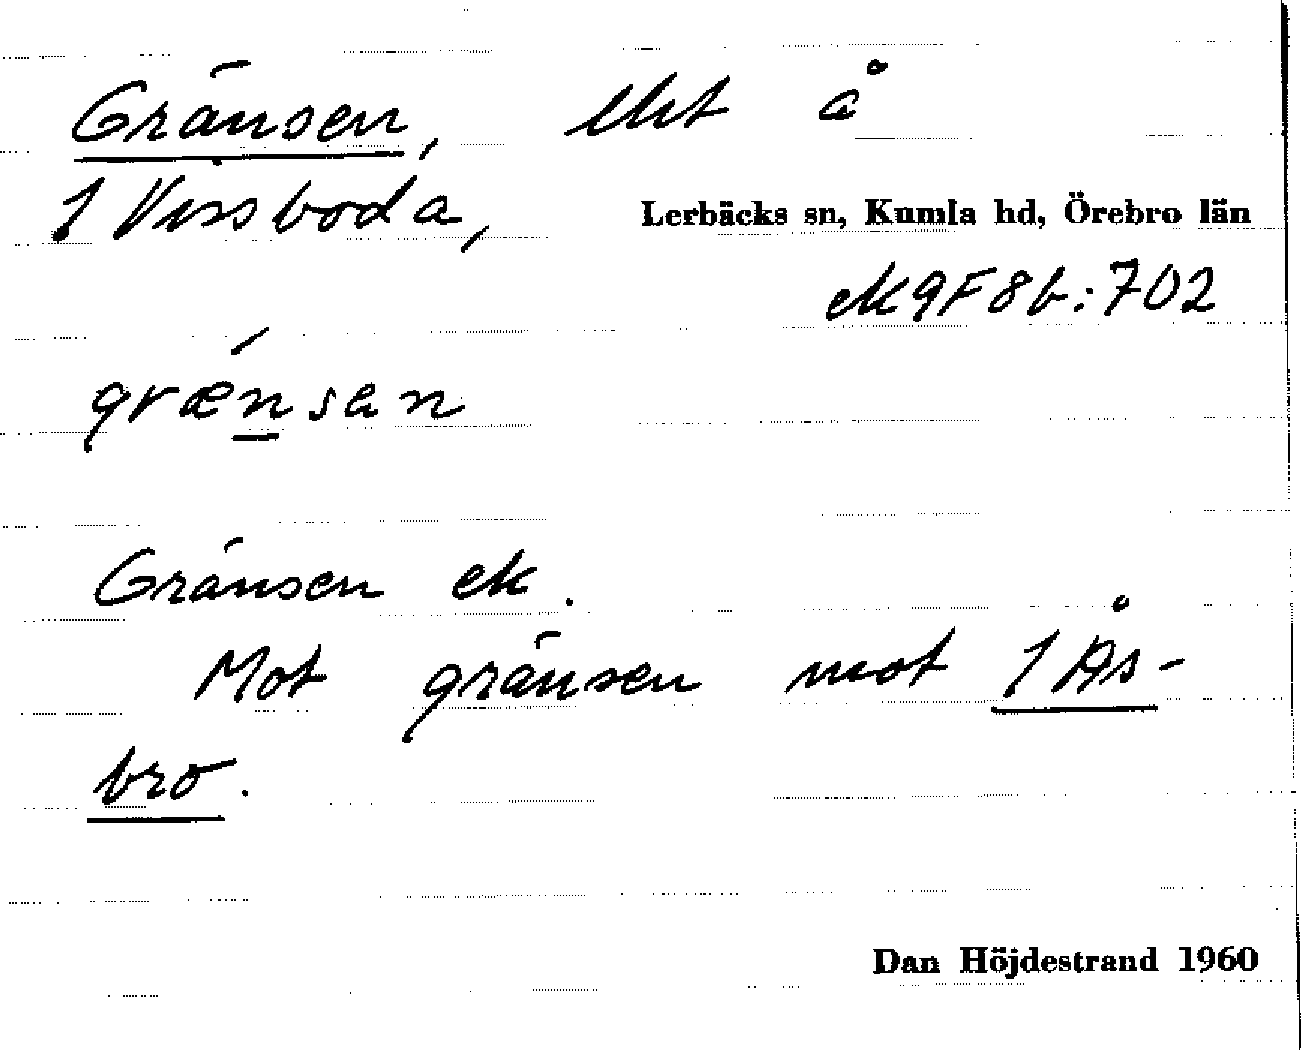 Gränsen, lht å
1 Vissboda,
Lerbäcks sn, Kumla hd, Örebro län
ek 9F8b:702
grænsan
Gränsen ek.
Mot gränsen mot 1 Ås-
bro.
Dan Höjdestrand 1960